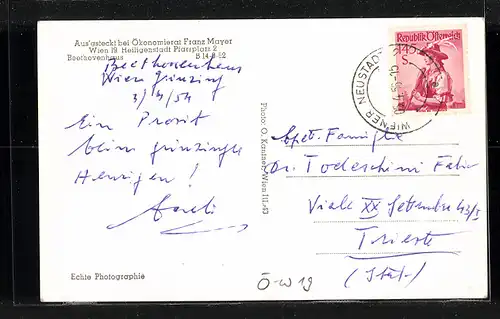 Aus'gsteckt bei Ökonomierat Franz Mayer
Wien 19. Heiligenstadt Pfarrplatz 2
Beethovenhaus B 14-8-52
Beethovenhaus
Wien Grinzing
3/4/54
Ein Prosit
beim Grinzinger
Heurigen!
Echte Photographie
Photo: O. Kastner, Wien III.-43
Republik Österreich
WIENER NEUSTADT
Spet. Famiglia
Dr. Todeschini Fabio
Viale XX Settembre 43/I
Trieste
(Ital.)
Ö-W 19